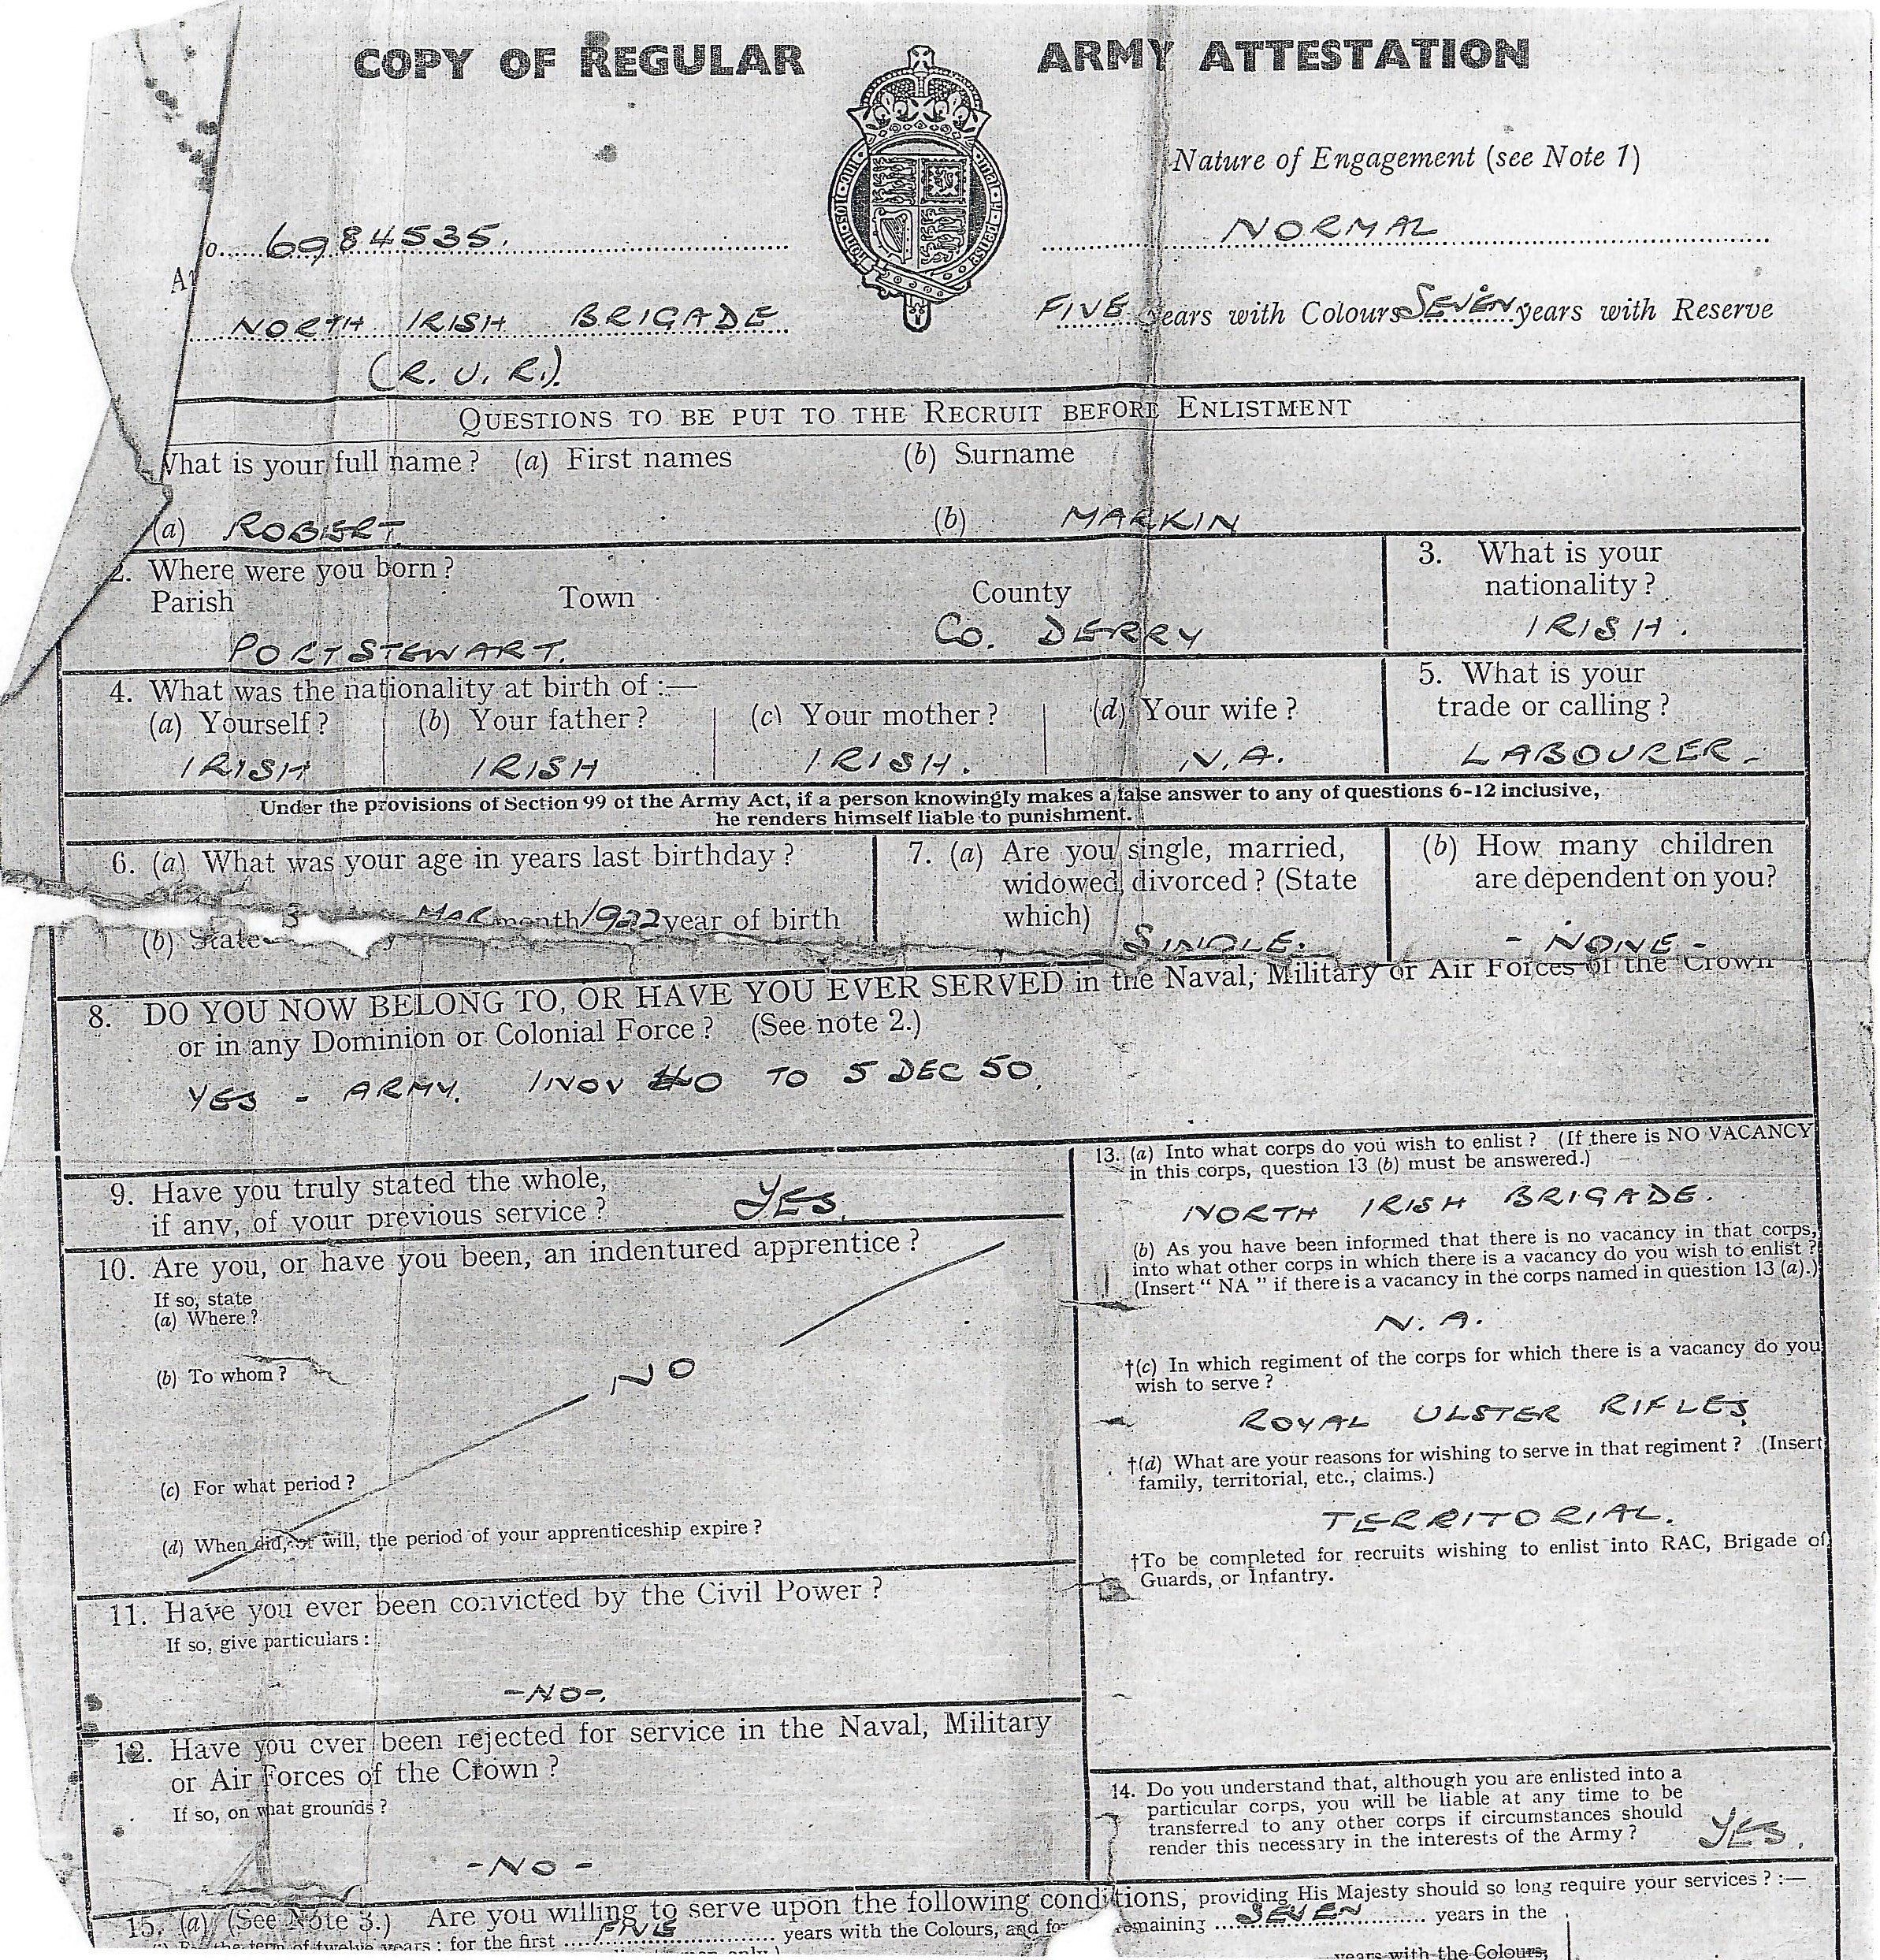 COPY OF REGULAR ARMY ATTESTATION
Nature of Engagement (see Note 1)
6984535. NORMAL
NORTH IRISH BRIGADE FIVE years with Colours SEVEN years with Reserve
(R. U. R.).
QUESTIONS TO BE PUT TO THE RECRUIT BEFORE ENLISTMENT
What is your full name? (a) First names (b) Surname
(a) ROBERT. (b) MARKIN
2. Where were you born?
Parish Town County
PORTSTEWART. Co. DERRY
3. What is your
nationality?
IRISH.
4. What was the nationality at birth of :—
(a) Yourself? (b) Your father? (c) Your mother? (d) Your wife?
IRISH IRISH IRISH. N.A.
5. What is your
trade or calling?
LABOURER.
Under the provisions of Section 99 of the Army Act, if a person knowingly makes a false answer to any of questions 6-12 inclusive,
he renders himself liable to punishment.
6. (a) What was your age in years last birthday?
(b) State 3 MAR month 1922 year of birth
7. (a) Are you single, married,
widowed, divorced? (State
which)
SINGLE.
(b) How many children
are dependent on you?
- NONE -
8. DO YOU NOW BELONG TO, OR HAVE YOU EVER SERVED in the Naval, Military or Air Forces of the Crown
or in any Dominion or Colonial Force? (See note 2.)
YES - ARMY. 1 NOV 40 TO 5 DEC 50.
9. Have you truly stated the whole,
if any, of your previous service? YES.
10. Are you, or have you been, an indentured apprentice?
If so, state
(a) Where?
(b) To whom?
NO
(c) For what period?
(d) When did, or will, the period of your apprenticeship expire?
11. Have you ever been convicted by the Civil Power?
If so, give particulars:
-NO-.
12. Have you ever been rejected for service in the Naval, Military
or Air Forces of the Crown?
If so, on what grounds?
-NO-
13. (a) Into what corps do you wish to enlist? (If there is NO VACANCY
in this corps, question 13 (b) must be answered.)
NORTH IRISH BRIGADE.
(b) As you have been informed that there is no vacancy in that corps,
into what other corps in which there is a vacancy do you wish to enlist?
(Insert "NA" if there is a vacancy in the corps named in question 13 (a).)
N. A.
†(c) In which regiment of the corps for which there is a vacancy do you
wish to serve?
ROYAL ULSTER RIFLES
†(d) What are your reasons for wishing to serve in that regiment? (Insert
family, territorial, etc., claims.)
TERRITORIAL.
†To be completed for recruits wishing to enlist into RAC, Brigade of
Guards, or Infantry.
14. Do you understand that, although you are enlisted into a
particular corps, you will be liable at any time to be
transferred to any other corps if circumstances should
render this necessary in the interests of the Army? YES.
15. (a) (See Note 3.) Are you willing to serve upon the following conditions, providing His Majesty should so long require your services? :—
term of twelve years: for the first FIVE years with the Colours, and for remaining SEVEN years in the
years with the Colours,